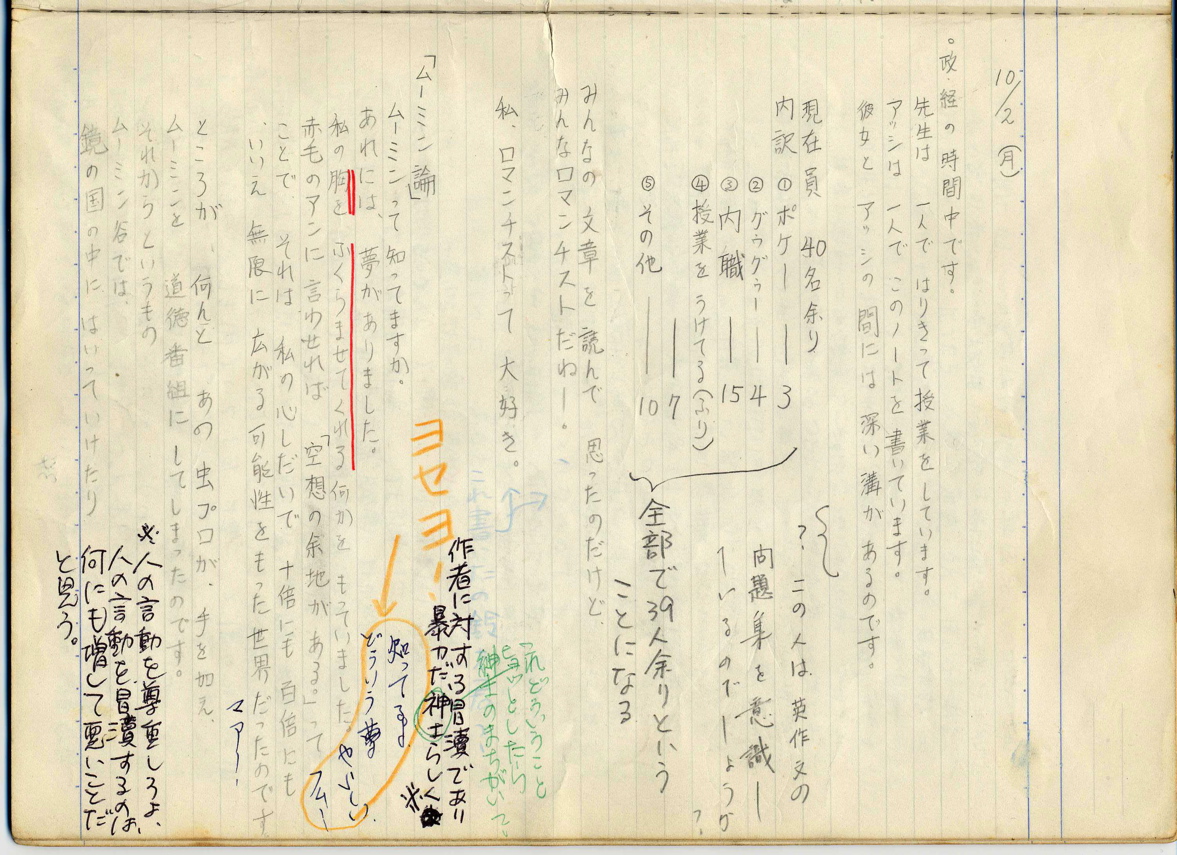 10/2 (月)
。政・経の時間中です。
先生は 一人で はりきって授業をしています。
アッシは 一人で このノートを書いています。
彼女と アッシの 間には 深い溝が あるのです。
現在員 40名余り
内訳 ①ポケー —— 3
②グゥグゥー —— 4
③内職 —— 15
④授業をうけてる(ふり)
—— 7
⑤その他 —— 10
全部で39人余りという
ことになる
? この人は 英作文の
問題集を意識し
ているのでしょうか
?
みんなの 文章を 読んで 思ったのだけど、
みんなロマンチストだねー。
私、ロマンチストって 大好き。
「ムーミン論」
ムーミンって知ってますか。
あれには、夢がありました。
私の胸を ふくらませてくれる 何かを もっていました
赤毛のアンに言わせれば 「空想の余地が ある。」って
ことで、それは、私の心しだいで 十倍にも 百倍にも
いいえ 無限に 広がる 可能性をもった世界だったのです
マアー!
ところが 何んと あの 虫プロが、手を加え、
ムーミンを 道徳番組に してしまったのです。
それからというもの
ムーミン谷では、
鏡の国の中に はいっていけたり
ヨセヨ!
知ってるよ
どういう夢
やらしい、
フムー
作者に対する冒瀆であり
暴力だ 神士らしく
これどういうこと
紳士のまちがいで、
※人の言動を尊重しろよ、
人の言動を冒瀆するのは、
何にも増して悪いことだ
と思う。